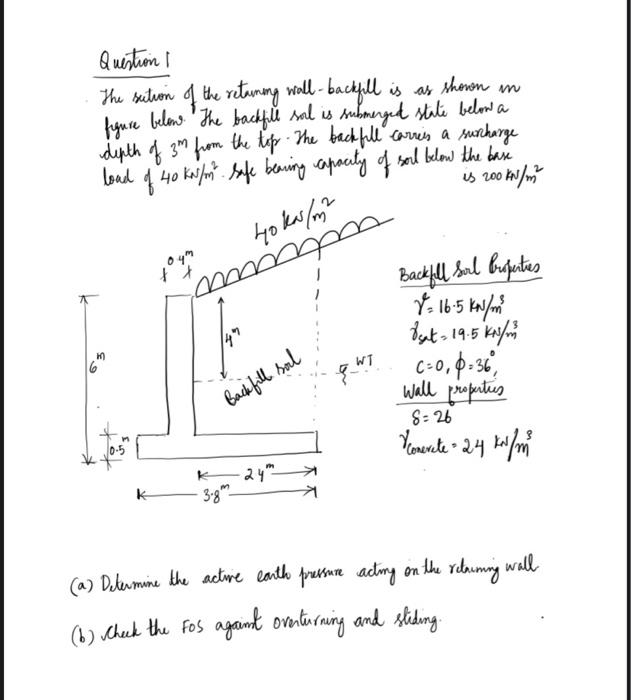 Question 1
The section of the retaining wall-backfill is as shown in
figure below. The backfill soil is submerged state below a
depth of 3m from the top. The backfill carries a surcharge
load of 40 kN/m². Safe bearing capacity of soil below the base
is 200 kN/m²
40 kN/m²
0.4m
Backfill Soil Properties
γ = 16.5 kN/m³
4m
γsat = 19.5 kN/m³
WT
6m
C=0, ϕ=36°,
Backfill soil
Wall properties
δ = 26
γconcrete = 24 kN/m³
0.5m
2.4m
3.8m
(a) Determine the active earth pressure acting on the retaining wall
(b) Check the FOS against overturning and sliding.